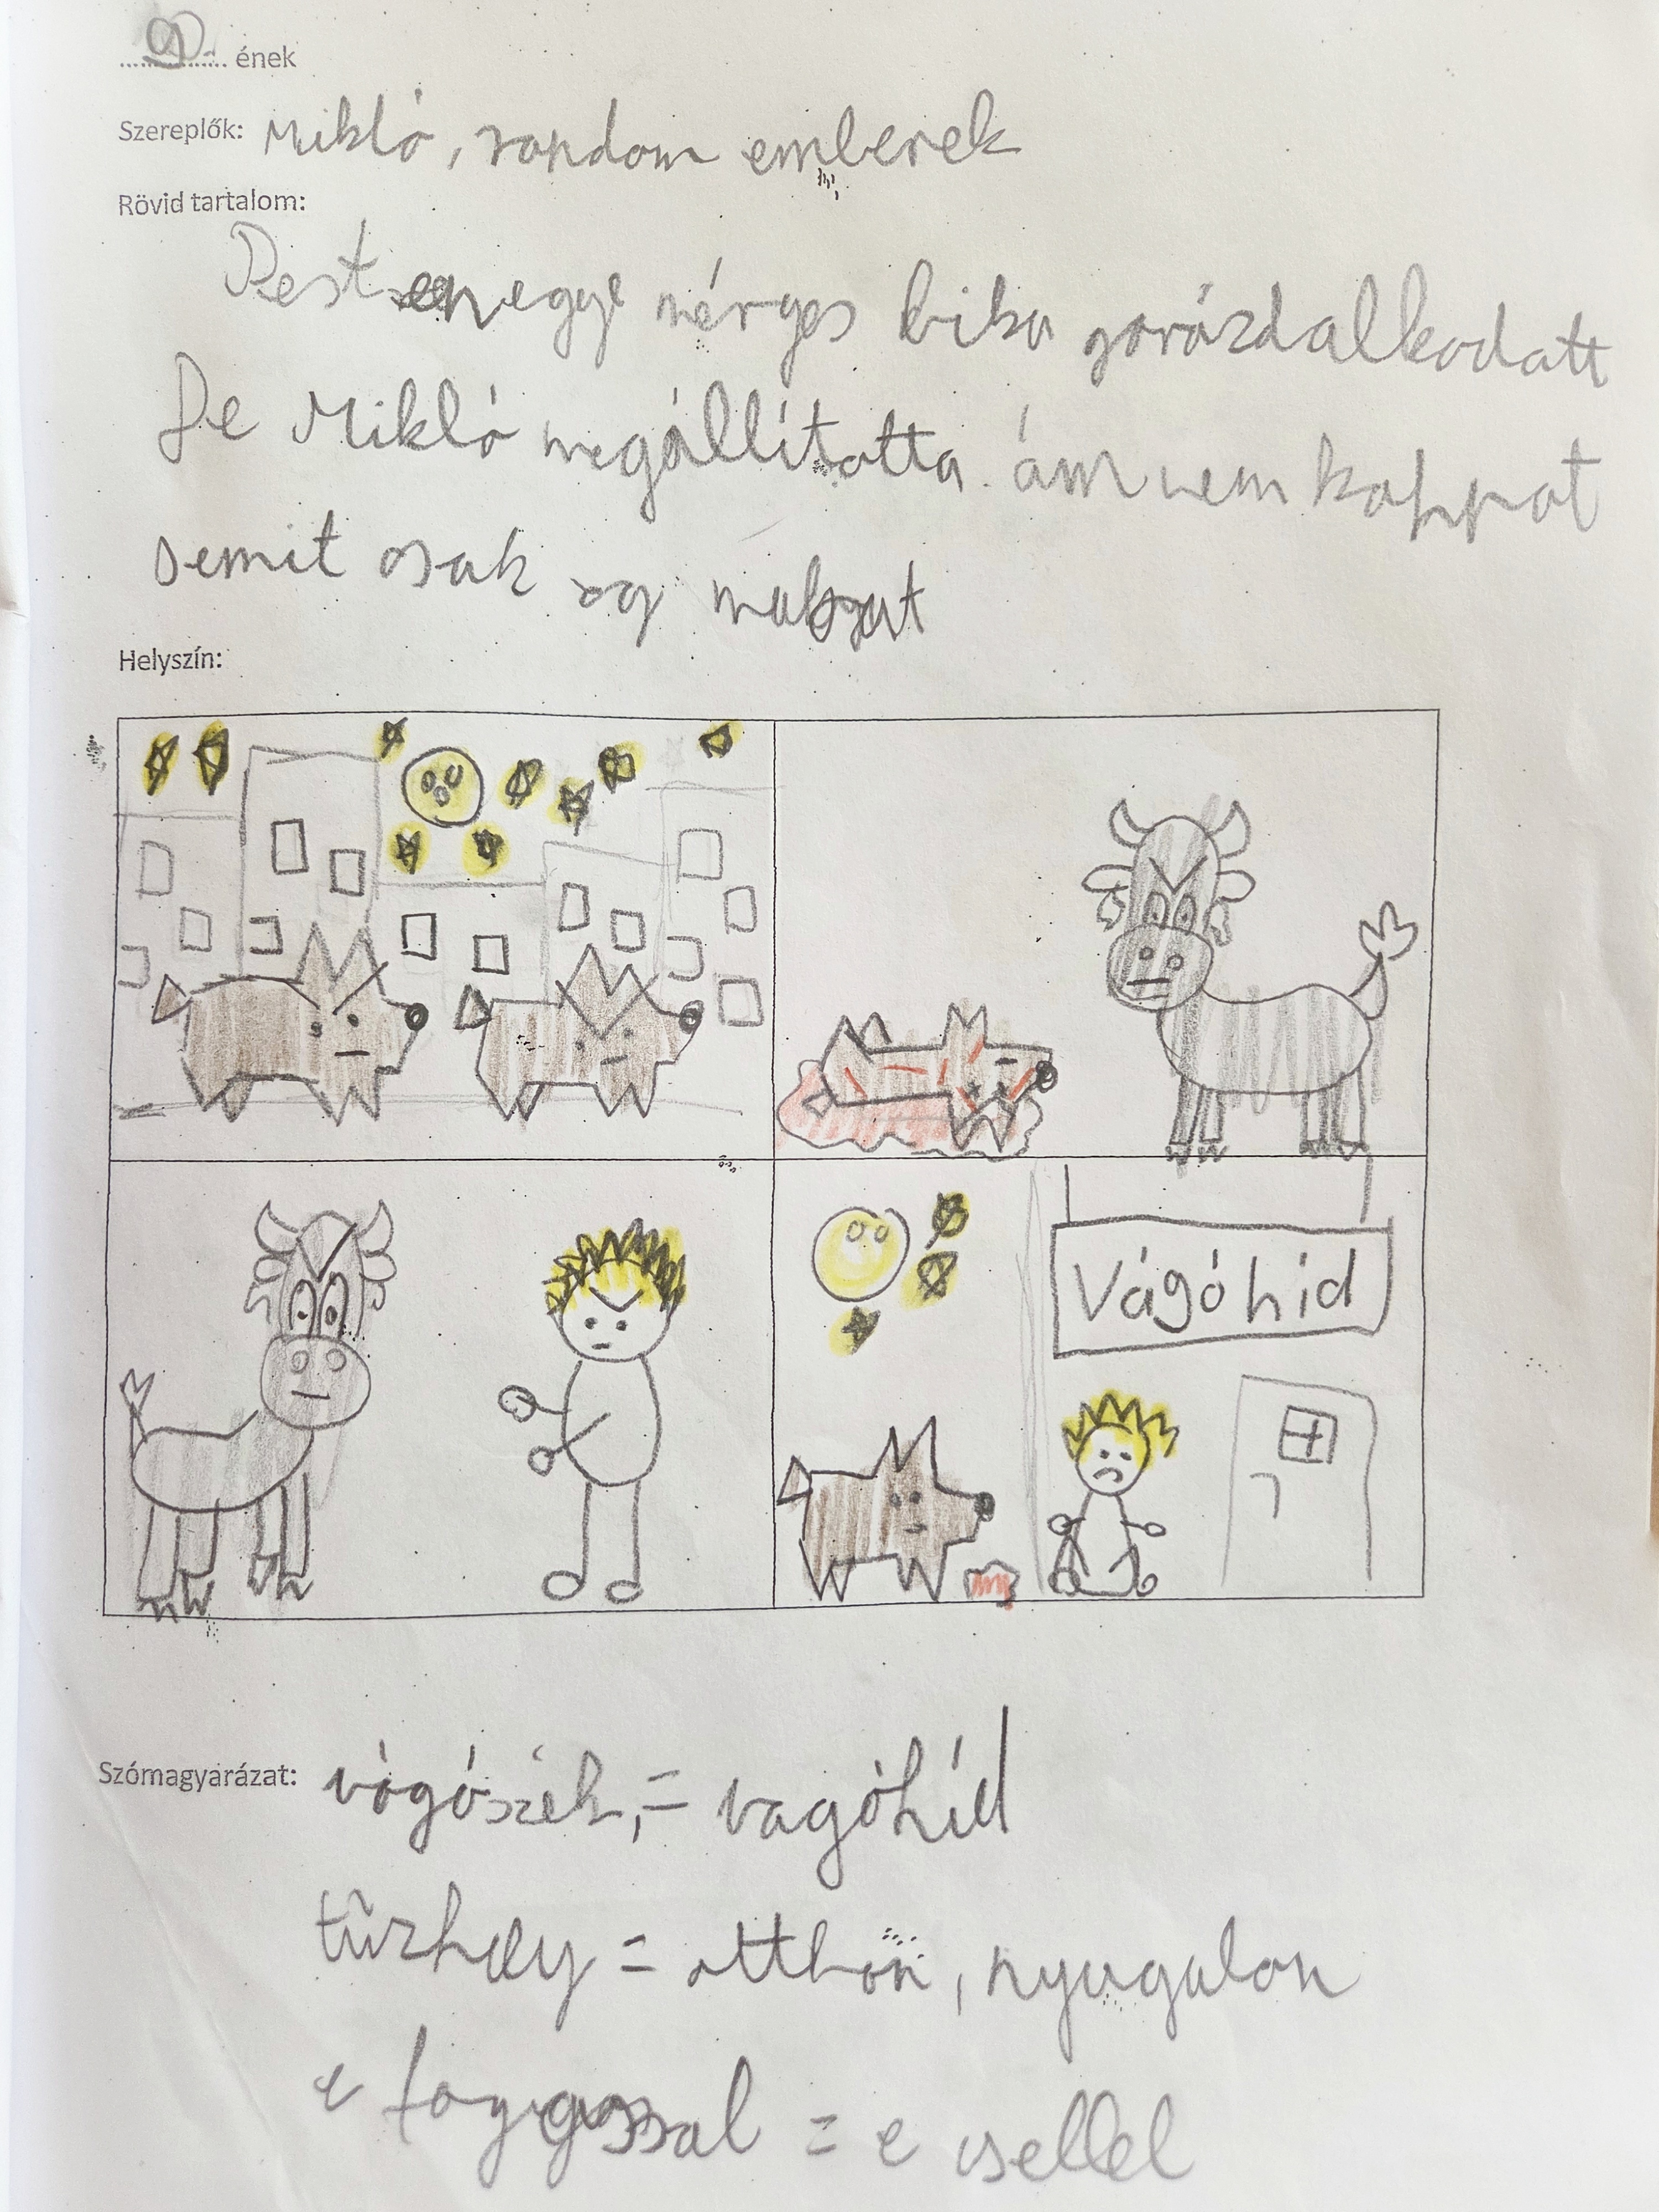 9. ének
Szereplők: Mikló, random emberek
Rövid tartalom:
Pesten egye mérges bika garázdalkodatt
De Mikló megállította. ám nem kappot
semit csak eg
Helyszín:
Vágóhíd
Szómagyarázat: vágószék = vagóhíd
tűzhely = otthon, nyugalon
e = e csellel